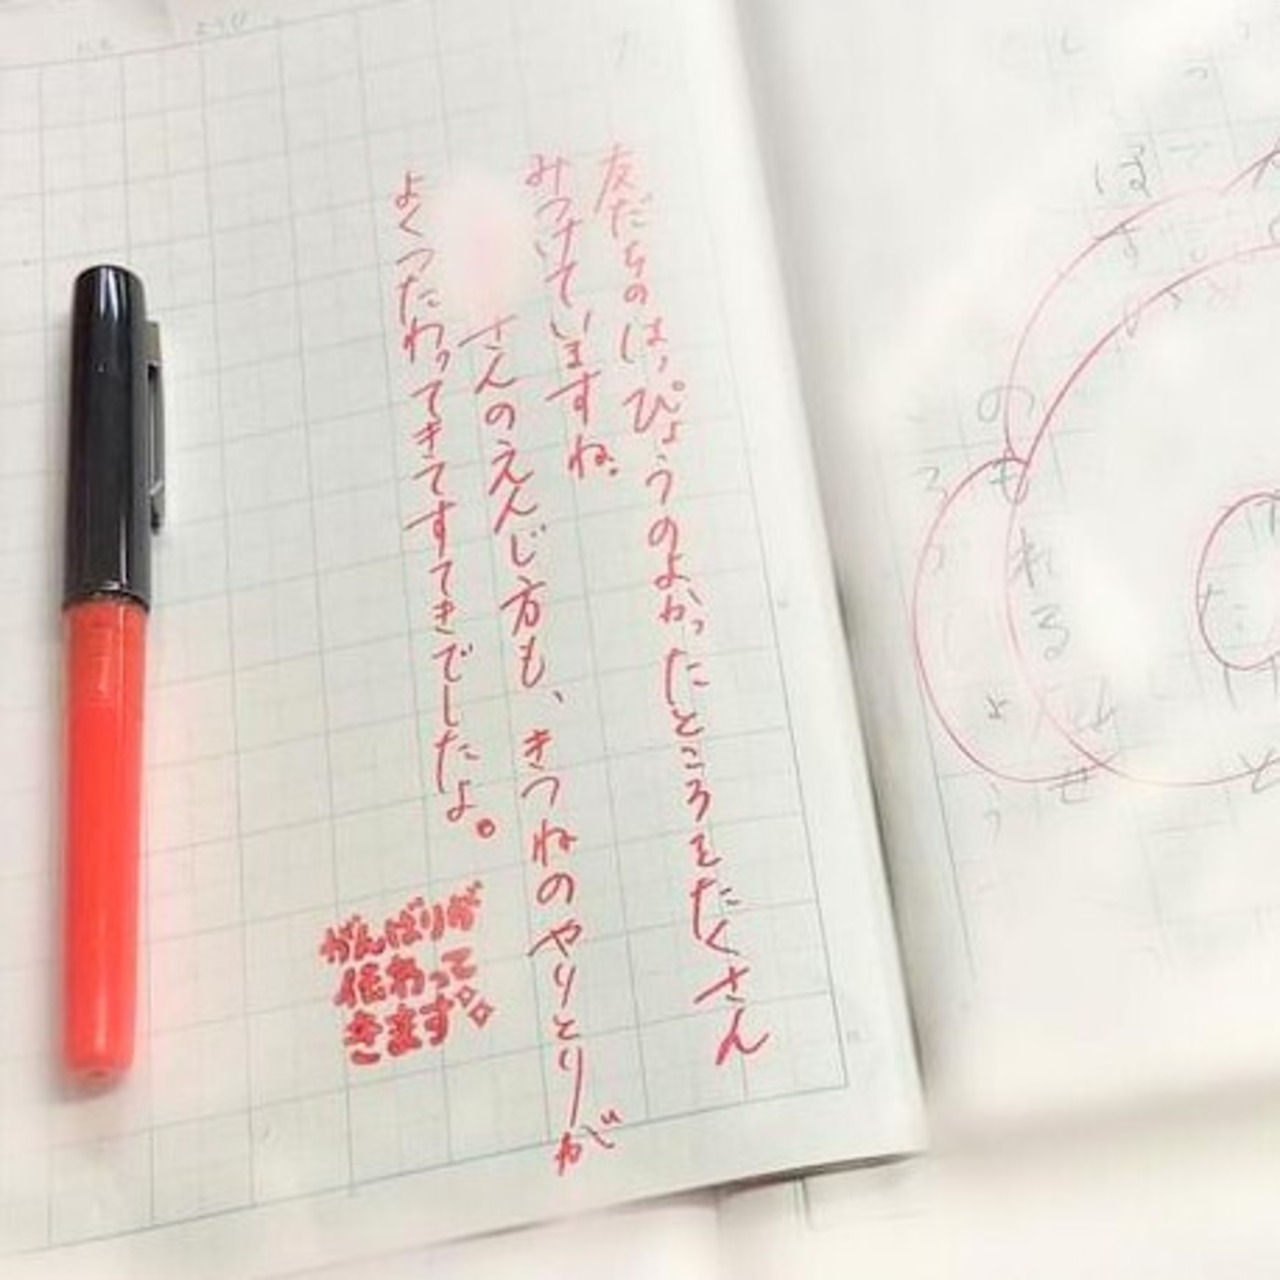 友だちのはっぴょうのよかったところをたくさん
みつけていますね。
さんのえんじ方も、きつねのやりとりが
よくつたわってきてすてきでしたよ。
がんばりが
伝わって
きます